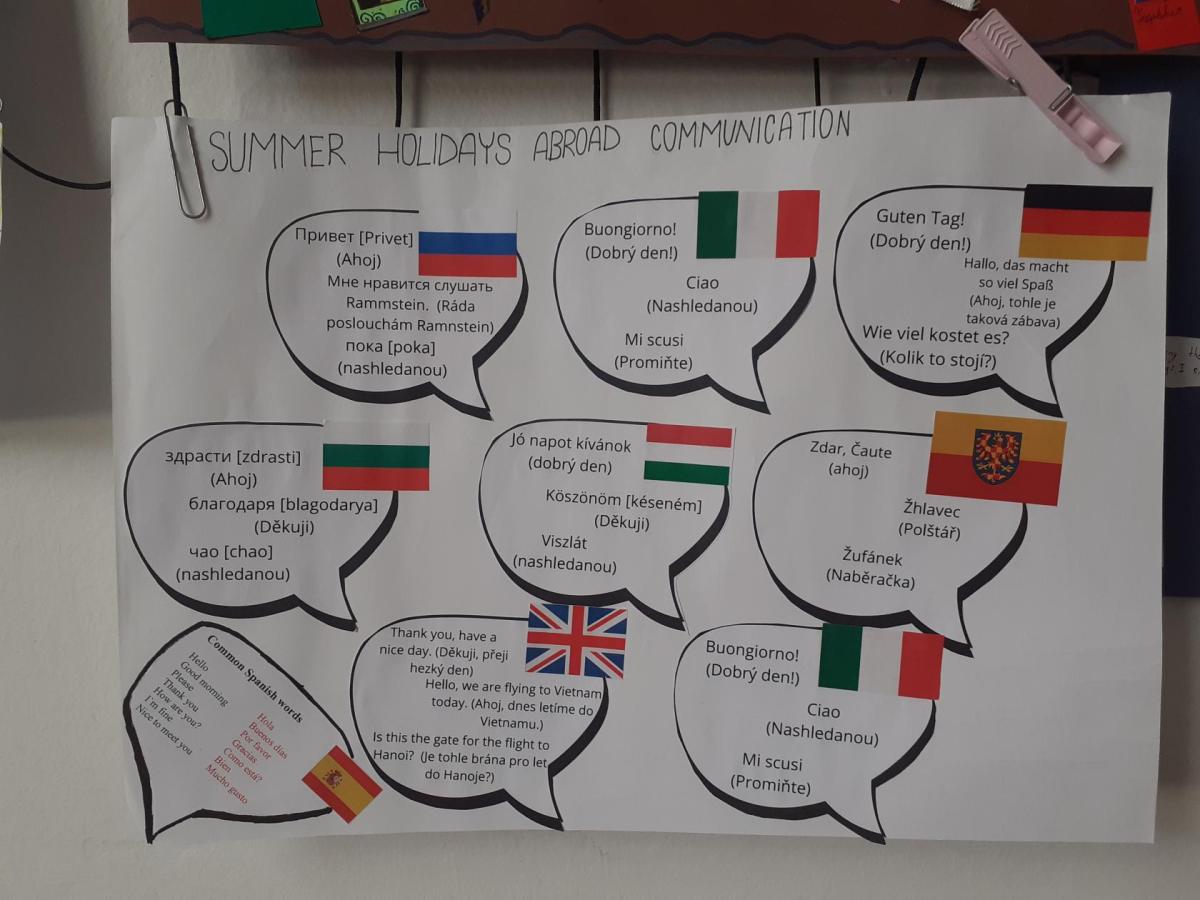 SUMMER HOLIDAYS ABROAD COMMUNICATION
Привет [Privet]
(Ahoj)
Мне нравится слушать
Rammstein. (Ráda
poslouchám Ramnstein)
пока [poka]
(nashledanou)
Buongiorno!
(Dobrý den!)
Ciao
(Nashledanou)
Mi scusi
(Promiňte)
Guten Tag!
(Dobrý den!)
Hallo, das macht
so viel Spaß
(Ahoj, tohle je
taková zábava)
Wie viel kostet es?
(Kolik to stojí?)
здрасти [zdrasti]
(Ahoj)
благодаря [blagodarya]
(Děkuji)
чао [chao]
(nashledanou)
Jó napot kívánok
(dobrý den)
Köszönöm [késeném]
(Děkuji)
Viszlát
(nashledanou)
Zdar, Čaute
(ahoj)
Žhlavec
(Polštář)
Žufánek
(Naběračka)
Common Spanish words
Hello
Good morning
Please
Thank you
How are you?
I'm fine
Nice to meet you
Hola
Buenos días
Por favor
Gracias
Como está?
Bien
Mucho gusto
Thank you, have a
nice day. (Děkuji, přeji
hezký den)
Hello, we are flying to Vietnam
today. (Ahoj, dnes letíme do
Vietnamu.)
Is this the gate for the flight to
Hanoi? (Je tohle brána pro let
do Hanoje?)
Buongiorno!
(Dobrý den!)
Ciao
(Nashledanou)
Mi scusi
(Promiňte)